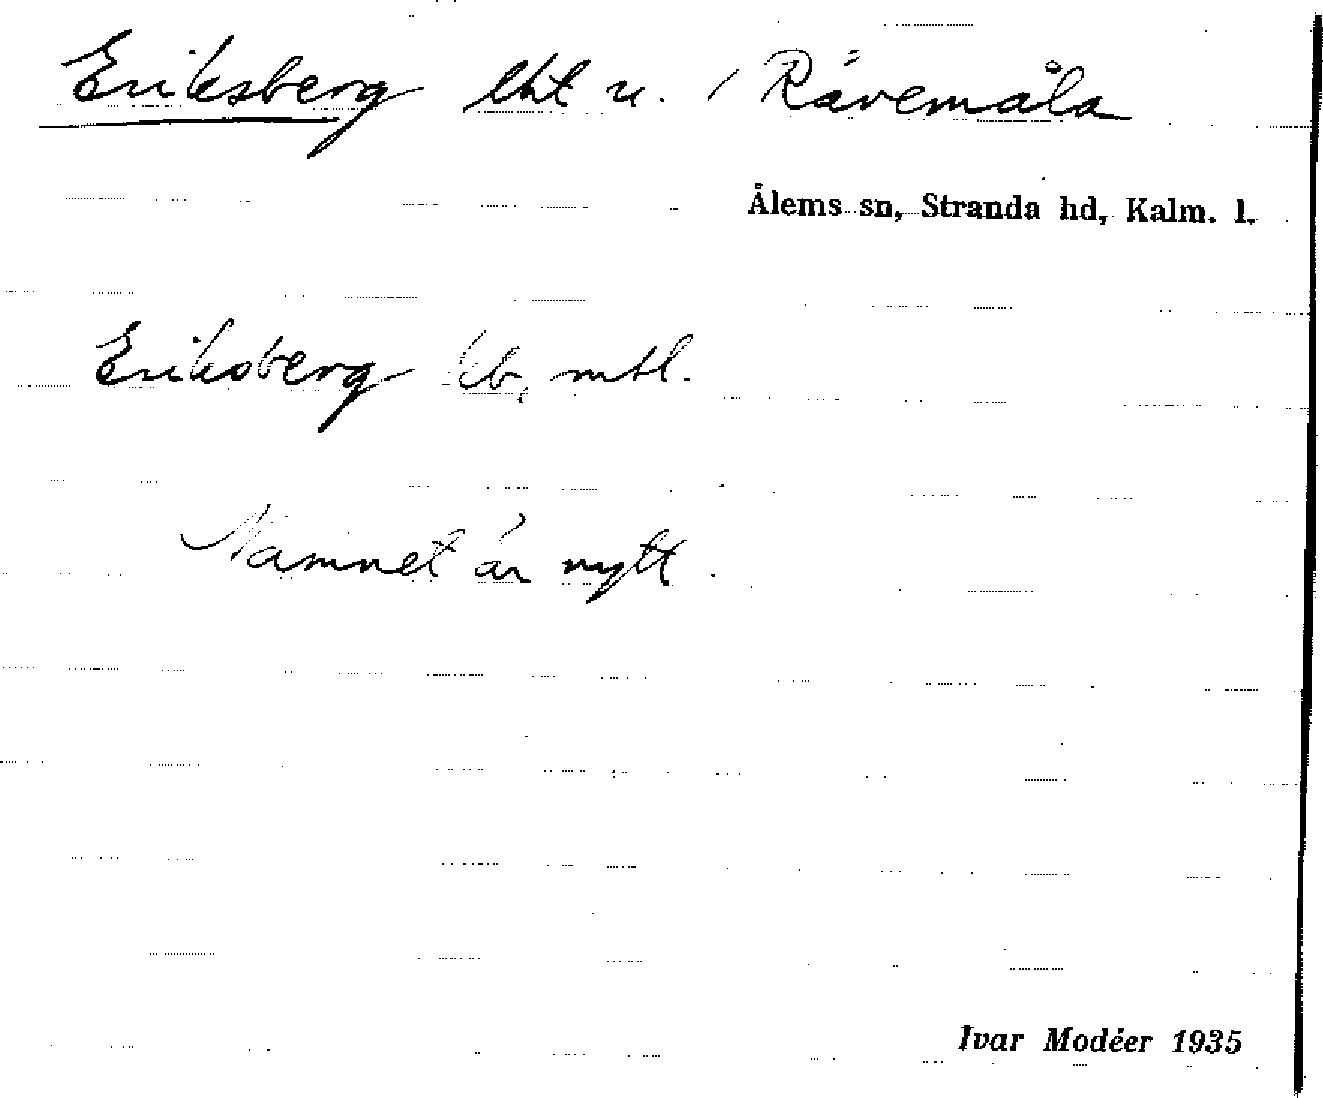 Eriksberg lht u. / Rävemåla
Ålems sn, Stranda hd, Kalm. l.
Eriksberg kb, mtl.
Namnet är nytt.
Ivar Modéer 1935